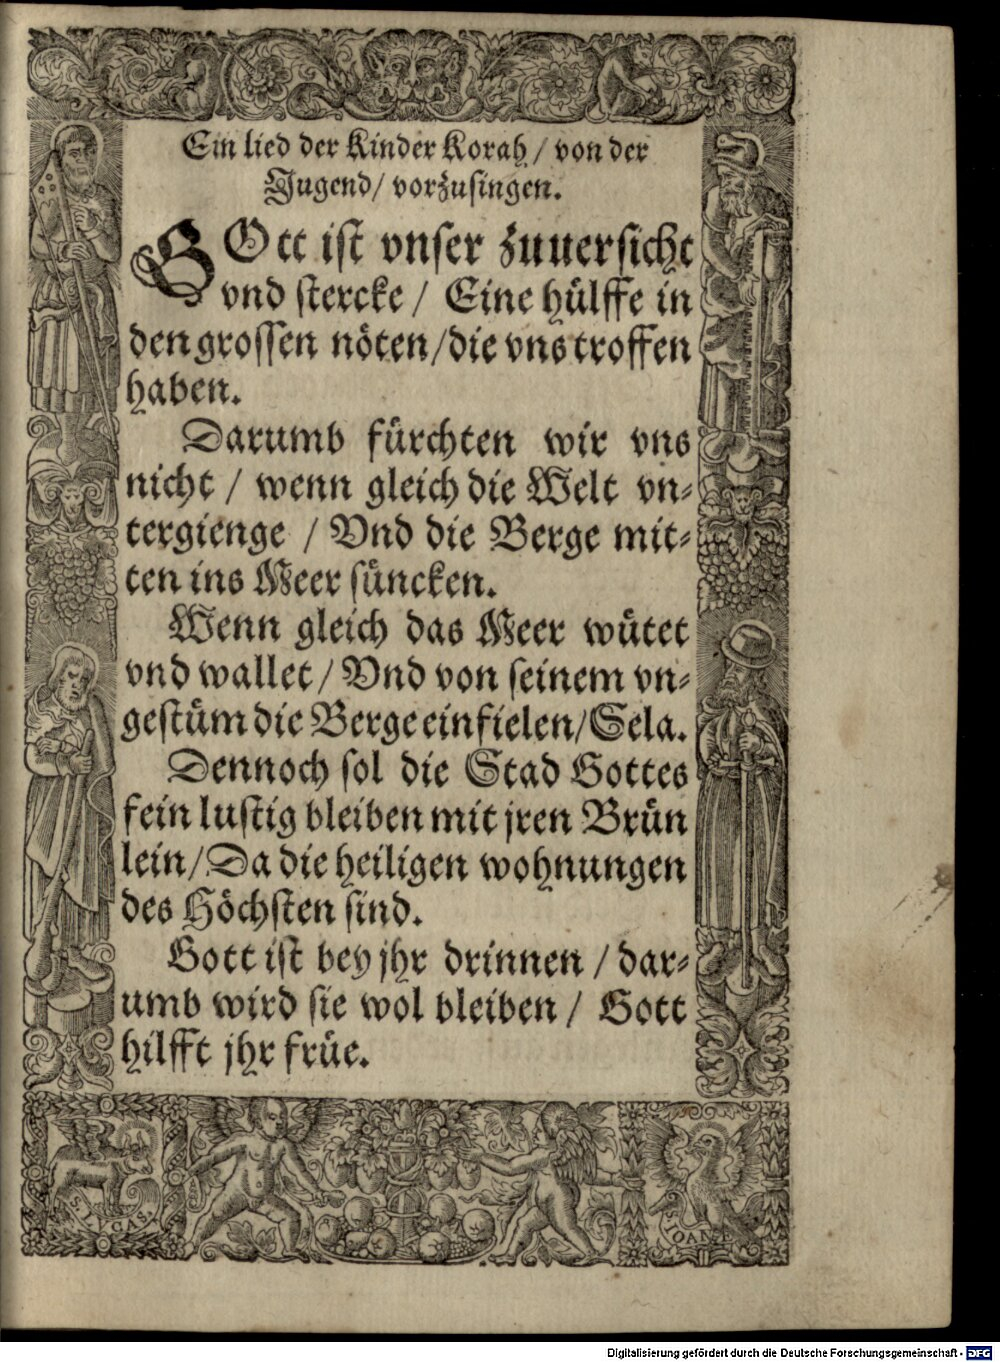 Ein lied der Kinder Korah / von der
Jugend / vorzusingen.
GOtt ist vnser zuuersicht
vnd stercke / Eine hülffe in
den grossen nöten / die vns troffen
haben.
Darumb fürchten wir vns
nicht / wenn gleich die Welt vn⸗
tergienge / Vnd die Berge mit⸗
ten ins Meer süncken.
Wenn gleich das Meer wütet
vnd wallet / Vnd von seinem vn⸗
gestüm die Berge einfielen / Sela.
Dennoch sol die Stad Gottes
fein lustig bleiben mit jren Brün
lein / Da die heiligen wohnungen
des Höchsten sind.
Gott ist bey jhr drinnen / dar⸗
umb wird sie wol bleiben / Gott
hilfft jhr früe.
S. LVCAS.
Digitalisierung gefördert durch die Deutsche Forschungsgemeinschaft - DFG